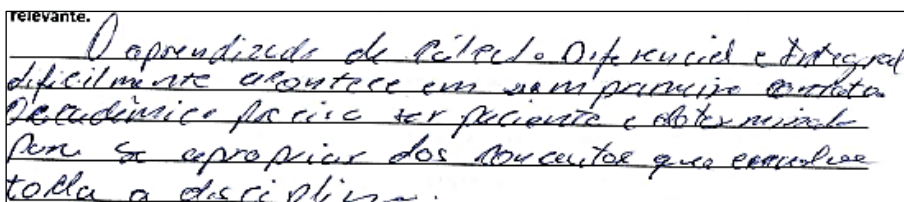 relevante.
O aprendizado de Cálculo Diferencial e Integral
dificilmente acontece em num primeiro contato
O acadêmico precisa ser paciente e determinado
para se apropriar dos conceitos que envolve
toda a disciplina.